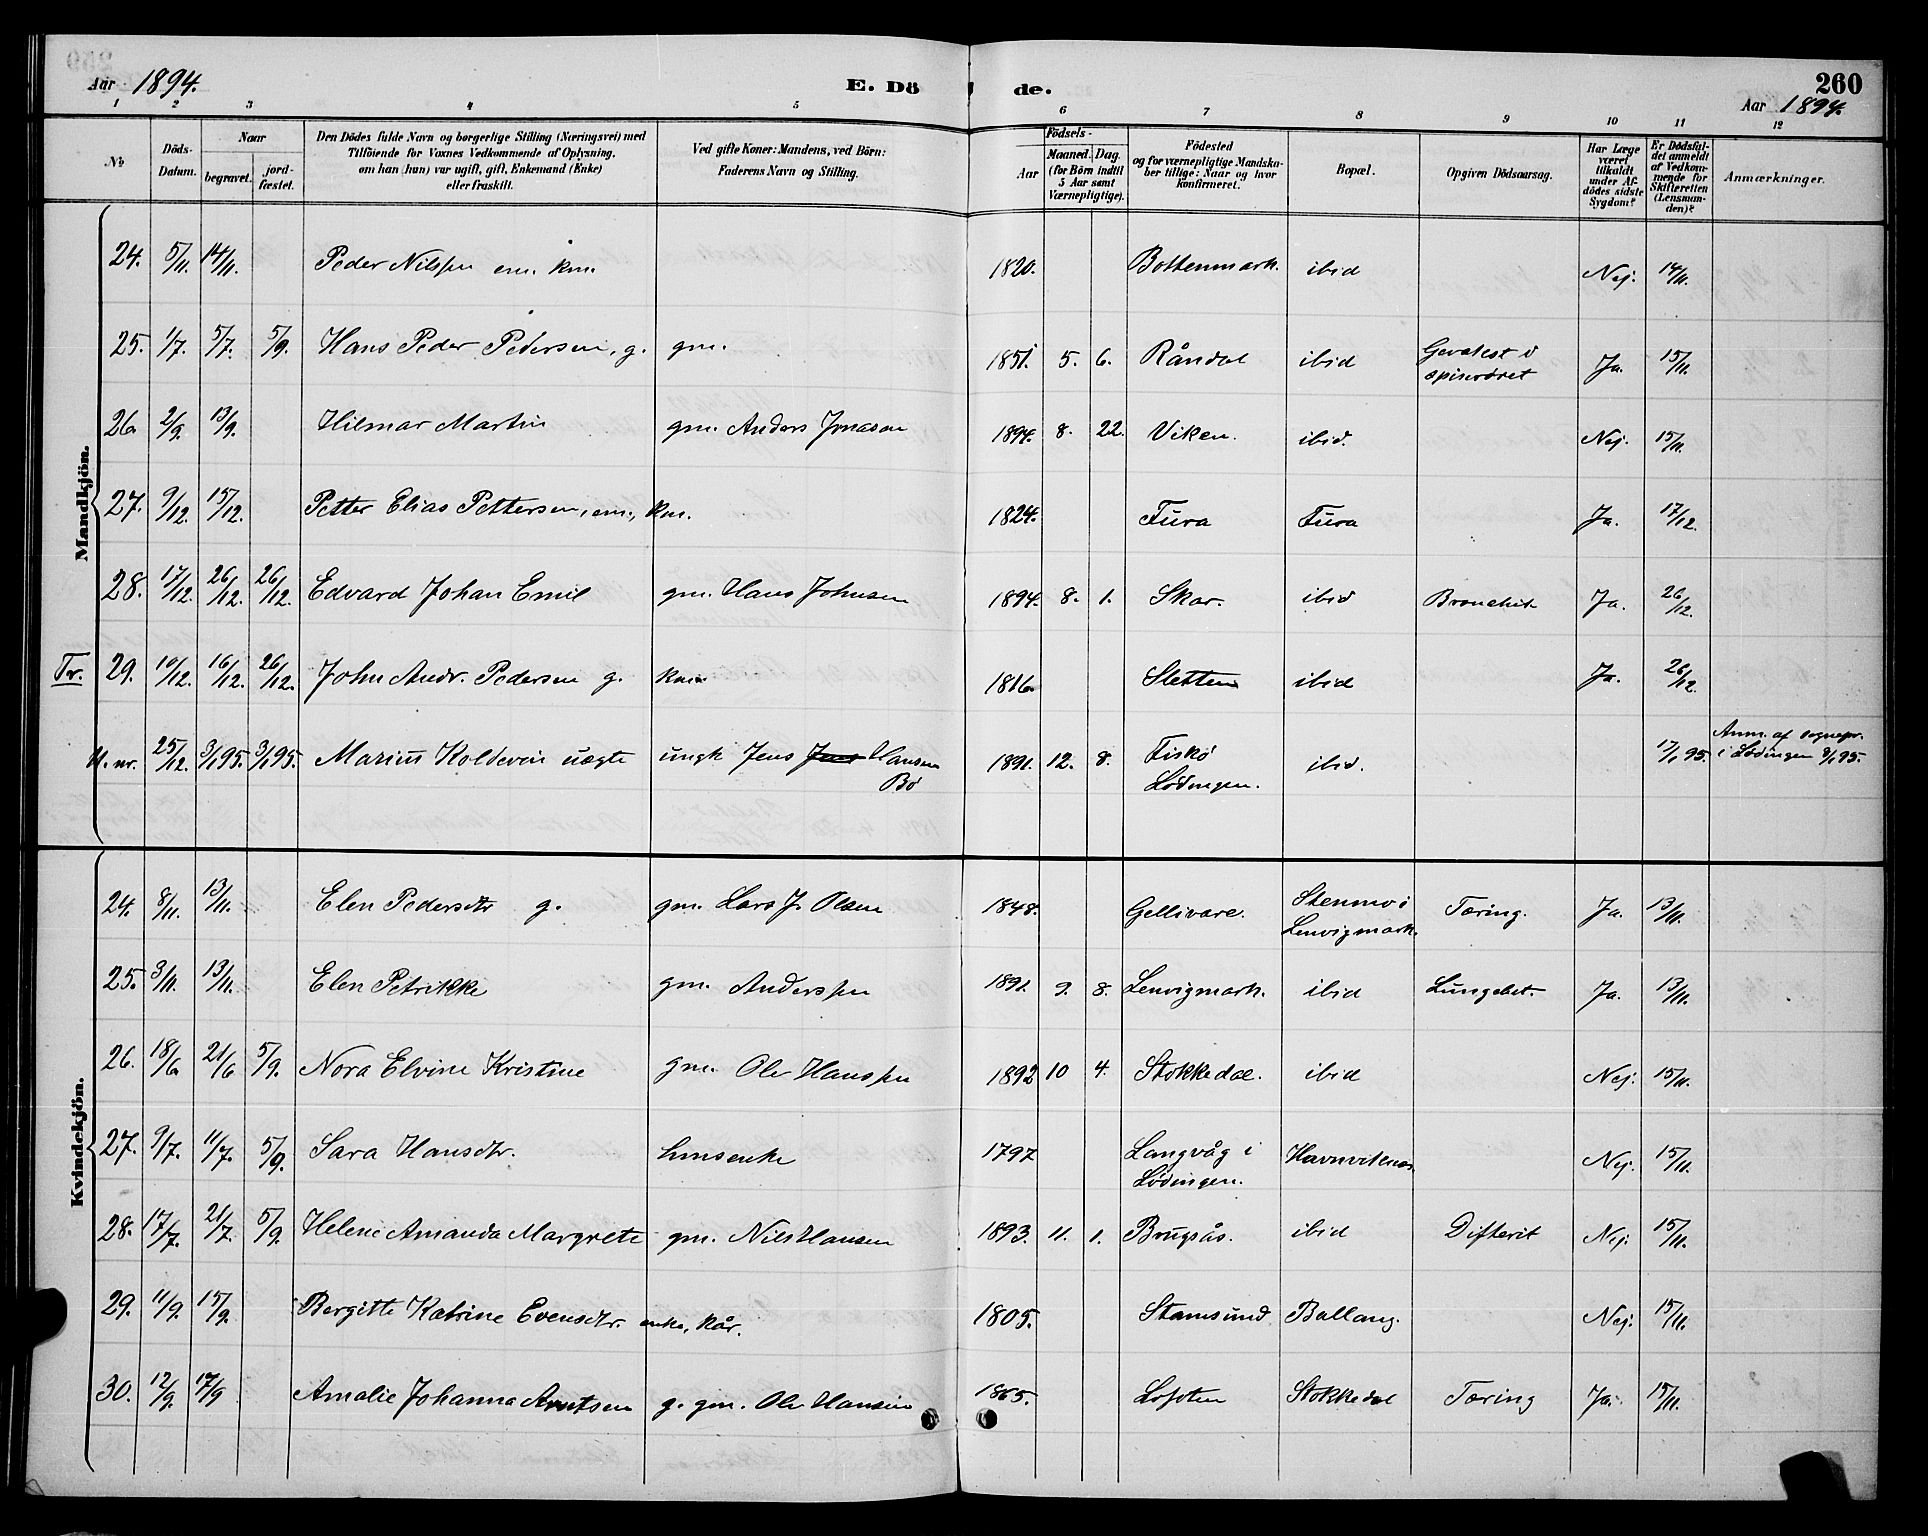 Aar 1894. E. Dö de. 260
Aar 1894.
1 2 3 4 5 6 7 8 9 10 11 12
No
Döds-Datum.
Naar
begravet.
jord-fæstet.
Den Dödes fulde Navn og borgerlige Stilling (Næringsvei) med
Tilföiende for Voxnes Vedkommende af Oplysning,
om han (hun) var ugift, gift, Enkemand (Enke)
eller fraskilt.
Ved gifte Koner: Mandens, ved Börn:
Faderens Navn og Stilling.
Födsels-
Aar
Maaned. Dag.
(for Börn indtil
5 Aar samt
Værnepligtige).
Födested
og for værnepligtige Mandska-
ber tillige: Naar og hvor
konfirmeret.
Bopæl.
Opgiven Dödsaarsag.
Har Læge
været
tilkaldt
under Af-
dödes sidste
Sygdom?
Er Dödsfal-
det anmeldt
af Vedkom-
mende for
Skifteretten
(Lensman-
den)?
Anmærkninger.
Mandkjön.
24. 5/11. 14/11. Peder Nilssen em. km. 1820. Bottenmark. ibid Nej. 14/11.
25. 1/7. 5/7. 5/9. Hans Peder Pedersen, g. gm. 1851. 5. 6. Råndal ibid Gevækst i
spiserøret Ja. 15/11.
26. 2/9. 13/9. Hilmar Martin gm. Anders Jonasen 1894. 8. 22. Viken. ibid. Nej. 15/11.
27. 9/12. 15/12. Petter Elias Pettersen, em., km. 1824. Fura Fura Ja. 17/12.
28. 17/12. 26/12. 26/12. Edvard Johan Emil gm. Hans Johnsen 1894. 8. 1. Skar. ibid Bronchit Ja. 26/12.
Tr. 29. 10/12. 16/12. 26/12. John Andr. Pedersen g. km. 1816. Sletten ibid Ja. 26/12.
U. nr. 25/12. 3/1 95. 3/1 95. Marius Koldevin uægte ungk Jens Jens Hansen
Bø 1891. 12. 8. Fiskø
Lødingen. ibid. 17/1 95. Anm. af sognepr.
i Lødingen 9/1 95.
Kvindekjön.
24. 8/11. 13/11. Elen Pedersdtr g. gm. Lars J. Olsen 1848. Gellivare. Stenmo i
Lenvigmark. Tæring. Ja. 13/11.
25. 3/11. 13/11. Elen Petrikke gm. Anderssen 1891. 9. 8. Lenvigmark. ibid Lungebet. Ja. 13/11.
26. 18/6 21/6 5/9. Nora Elvine Kristine gm. Ole Hanssen 1892 10 4. Stokkedal. ibid Nej. 15/11.
27. 9/7. 11/7. 5/9. Sara Hansdtr. husenke 1797 Langvåg i
Lødingen. Havnviknes Nej. 15/11.
28. 17/7. 21/7. 5/9. Helene Amanda Margrete gm. Nils Hansen 1893. 11. 1. Brugsås. ibid Difterit Nej. 15/11.
29. 11/9. 15/9. Bergitte Katrine Evensdtr. enke, kår. 1805. Stamsund Ballang. Nej. 15/11.
30. 12/9. 17/9 Amalie Johanna Arntsen g. gm. Ole Hansen 1865. Lofoten Stokkedal Tæring Ja. 15/11.